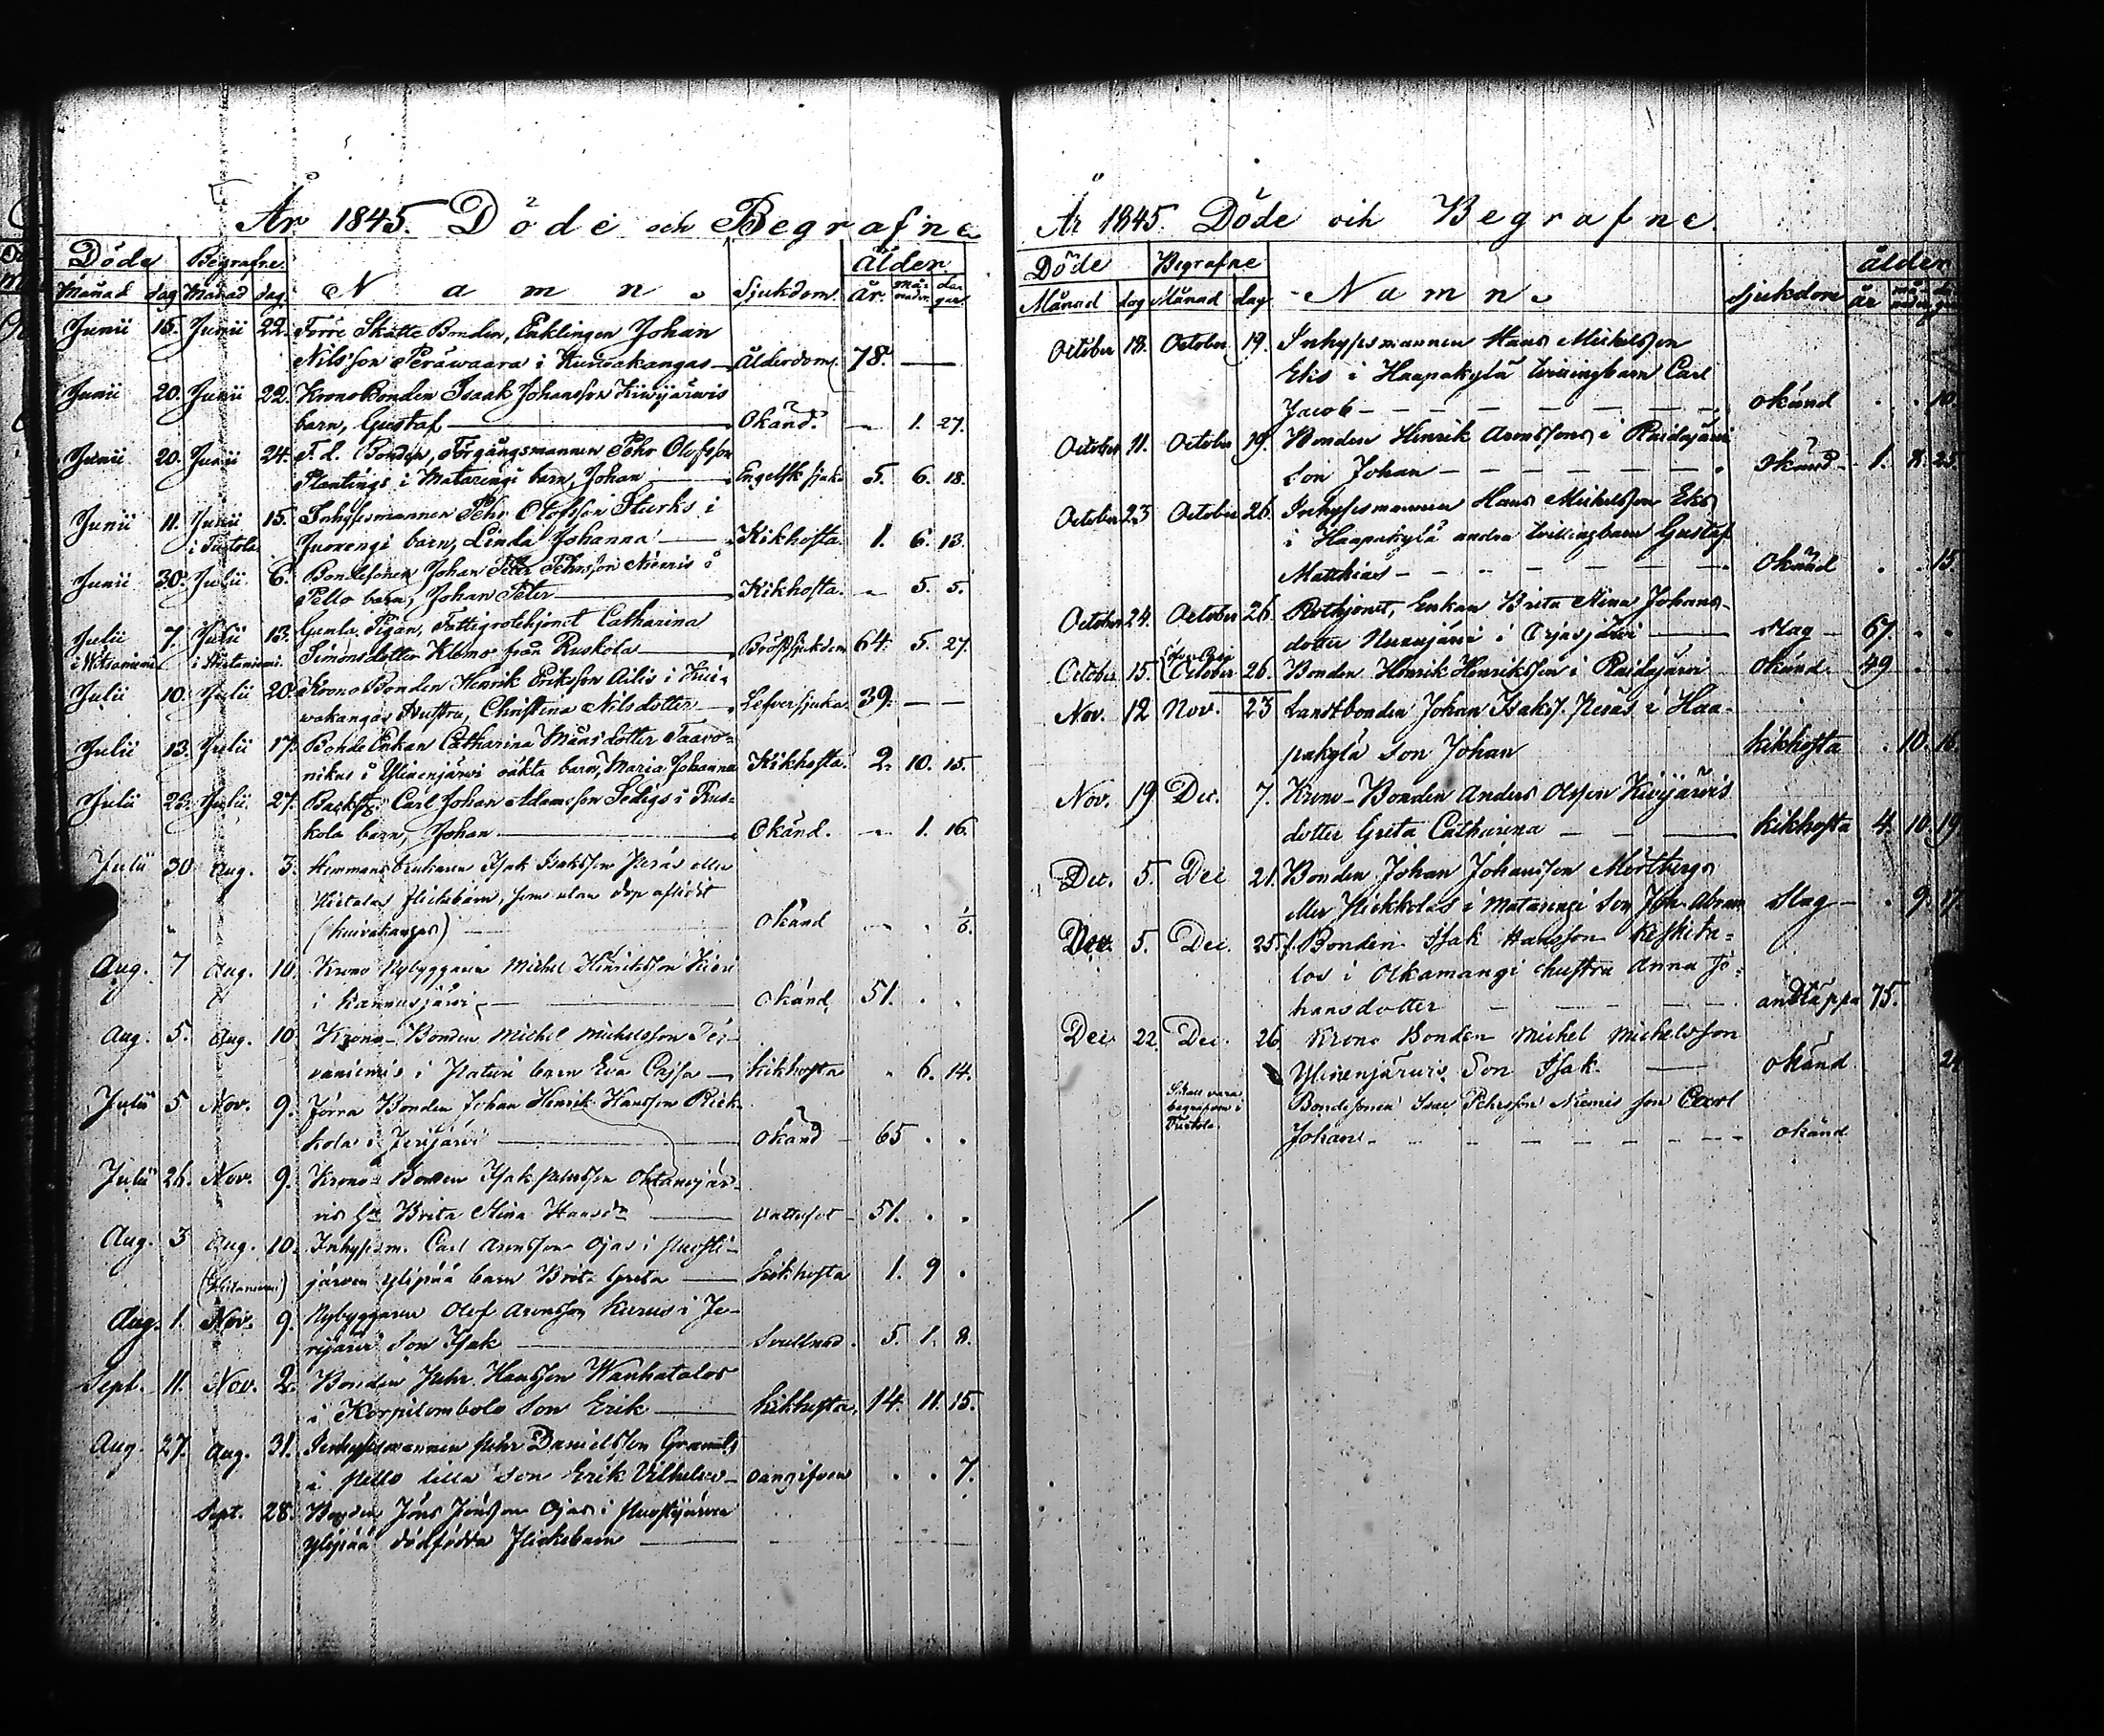 År 1845. Döde och Begrafne
Döde Begrafne. Ålder.
Månad dag Månad dag. Namn. Sjukdom. år. må-nader. da-gar.
Junii 15. Junii 22. Förre Skatte Bonden, Enklingen Johan
Nilsson Perävaara i Kuivakangas Ålderdom. 78. — —
Junii 20. Junii 22. Krono Bonden Isaak Johansson Kiwijärwis
barn, Gustaf Okänd. — 1. 27.
Junii 20. Junii 24. F. d. Bonden, Förgångsmannen Pehr Olofsson
Plantings i Matarengi barn, Johan Engelsk sjuk. 5. 6. 18.
Junii 11. Junii 15. Inhysesmannen Pehr Olofsson Sturks i
i Turtola Juoxengi barn, Linda Johanna Kikhosta. 1. 6. 13.
Junii 30. Julii 6. Bondesonen Johan Peter Pehrsson Niemis i
Pello barn, Johan Peter Kikhosta. — 5. 5.
Julii 7. Julii 13. Gamla Pigan, Fattigrotehjonet Catharina
i Hietaniemi Simonsdotter Klemo från Ruskola Bröstsjukdom 64. 5. 27.
Julii 10. Julii 20. Krono Bonden Henrik Eriksson Ailis i Kui-
wakangas Hustru, Christina Nilsdotter Lefversjuka. 39. — —
Julii 13. Julii 17. Bonde Enkan Catharina Månsdotter Taavo-
nikus i Ylinenjärwi oäkta barn, Maria Johanna Kikhosta. 2. 10. 15.
Julii 22. Julii 27. Backst. Carl Johan Adamsson Sedigs i Rus-
kola barn, Johan Okänd. — 1. 16.
Julii 30 Aug. 3. Hemmansbrukaren Isak Isaksson eller
Hietala flickebarn, som utan dop aflidit
(Kuivakangas) Okänd
Aug. 7 Aug. 10. Krono Nybyggaren Michel Henriksson Kieri
i Kannusjärvi okänd 51. . .
Aug. 5. Aug. 10. Krono-Bonden Michel Michelsson Ter-
vaniemis i barn Eva Cajsa kikhosta . 6. 14.
Julii 5 Nov. 9. Förra Bonden Johan Henrik Hansson Rick-
kola i Jerijärvi okänd 65 . .
Julii 26. Nov. 9. Krono-Bonden Isak Ohtanajär-
vis Hu Brita Stina Hansdr vattusot 51. . .
Aug. 3 Aug. 10. Inhysesm. Carl Aronsson Ojas i Puosti-
(Hietaniemi) järven ylipää barn Brita Greta kikhosta 1. 9 .
Aug. 1. Nov. 9. Nybyggaren Olof Aronsson Kurus i Je-
rijärvi Son Isak Svullnad. 5. 1. 8.
Sept. 11. Nov. 2. Bonden Pehr Hansson Wanhatalos
i Korpilombolo Son Erik kikhosta. 14. 11. 15.
Aug. 27. Aug. 31. Inhysesmannen Pehr Danielsson
i Pello lilla son Erik Vilhelm oangifven . . 7.
Sept. 28. Bonden Jöns Jönsson Ojas i Puostijärven
ylipää dödfödda flickebarn
År 1845. Döde och Begrafne.
Döde Begrafne ålder
Månad dag Månad dag Namn. Sjukdom år
October 18. October 19. Inhysesmannen Hans Michelsson
Eks i Haapakylä tvillingbarn Carl
Jacob okänd . . 10.
October 11. October 19. Bonden Henrik Aronssons i Raidejärvi
Son Johan okänd 1. 8. 25.
October 23 October 26. Inhysesmannen Hans Michelsson Eks
i Haapakylä andra tvillingbarn Gustaf
Matthias Okänd . . 15
October 24. October 26. Rothjonet, Enkan Brita Stina Johans-
dotter i Orjasjärvi Slag 67. . .
October 15. October 26. Bonden Henrik Henriksson i Raidejärvi okänd. 49
Nov. 12 Nov. 23 Landtbonden Johan Isaks. i Haa-
pakylä son Johan kikhosta . 10. 16.
Nov. 19 Dec. 7. Krono-Bonden Anders Olsson Kivijärvis
dotter Greta Catharina kikhosta 4. 10. 19
Dec. 5. Dec 21. Bonden Johan Johansson Mörtbergs
eller i Matarengi Son Joh. Abram Slag . 9. 17.
Nov. 5. Dec. 25. f. Bonden Isak Hansson Keskita-
los i Olkamangi hustru Anna Jo-
hansdotter andtäppa 75.
Dec 22. Dec. 26. Krono Bonden Michel Michelsson
Ylinenjärvis Son Isak okänd 24
Skall vara begrafven i Turtola. Bondesonen Isac Pehrsson Niemis son Carl
Johan okänd